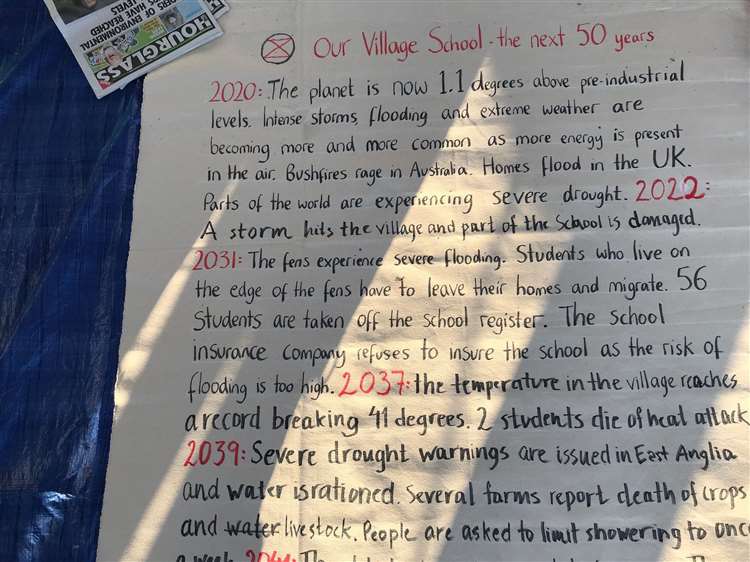 HOURGLASS
OF ENVIRONMENTAL
HAVE LEVELS
REACHED
Our Village School - the next 50 years
2020: The planet is now 1.1 degrees above pre-industrial
levels. Intense storms, flooding and extreme weather are
becoming more and more common as more energy is present
in the air. Bushfires rage in Australia. Homes flood in the UK.
Parts of the world are experiencing severe drought. 2022:
A storm hits the village and part of the School is damaged.
2031: The fens experience severe flooding. Students who live on
the edge of the fens have to leave their homes and migrate. 56
Students are taken off the school register. The school
insurance company refuses to insure the school as the risk of
flooding is too high. 2037: the temperature in the village reaches
a record breaking 41 degrees. 2 students die of heat attack
2039: Severe drought warnings are issued in East Anglia
and water is rationed. Several farms report death of crops
and water livestock. People are asked to limit showering to once
a week.